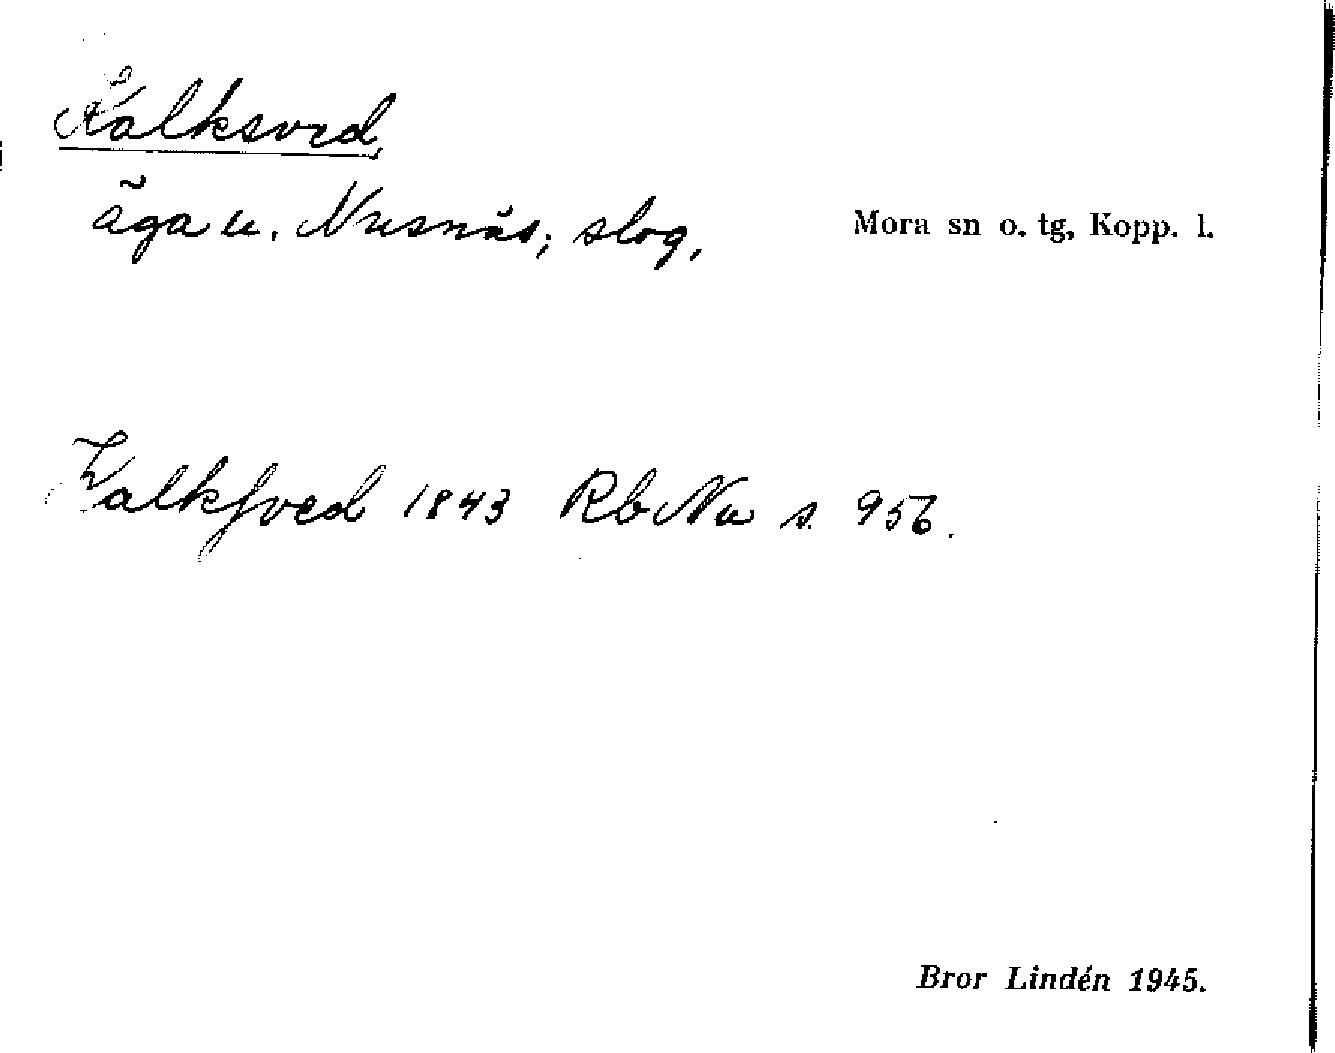 Kalksved,
äga u. Nusnäs, slog, Mora sn o. tg, Kopp. l.
Kalksved 1843 Rb Nu s. 956.
Bror Lindén 1945.